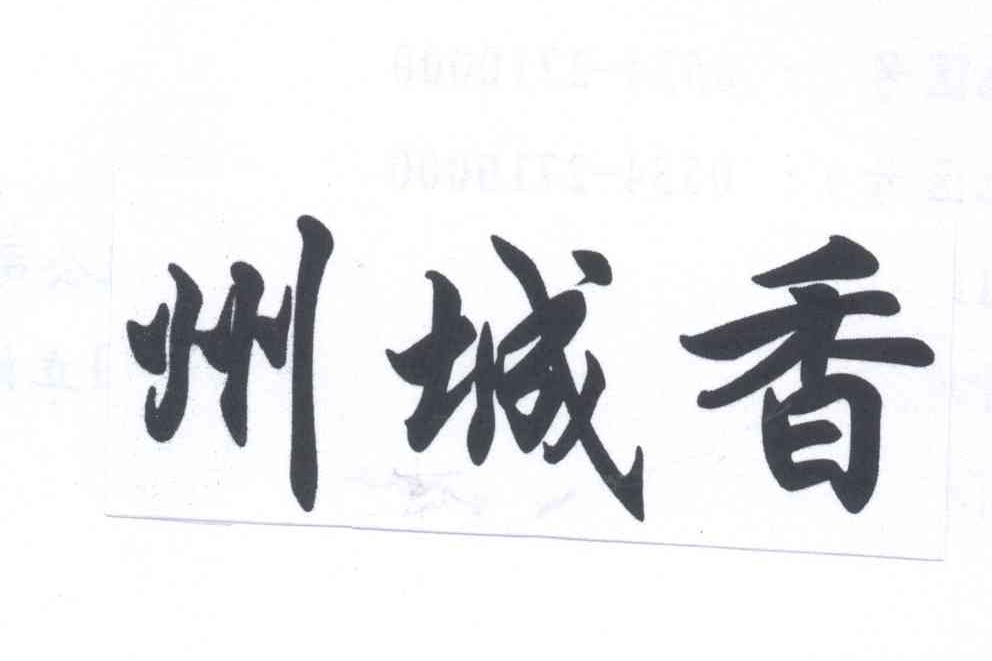 州城香